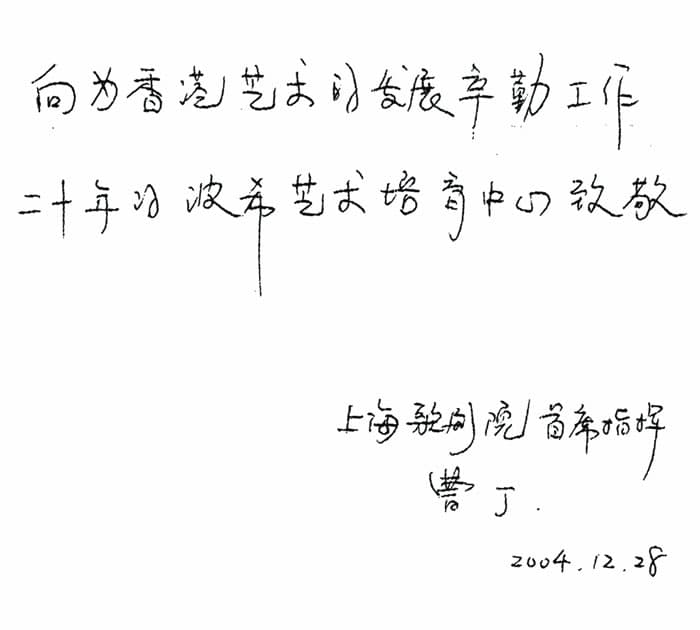 向为香港艺术的发展辛勤工作
二十年的波希艺术培育中心致敬
上海歌剧院首席指挥
曹丁.
2004.12.28